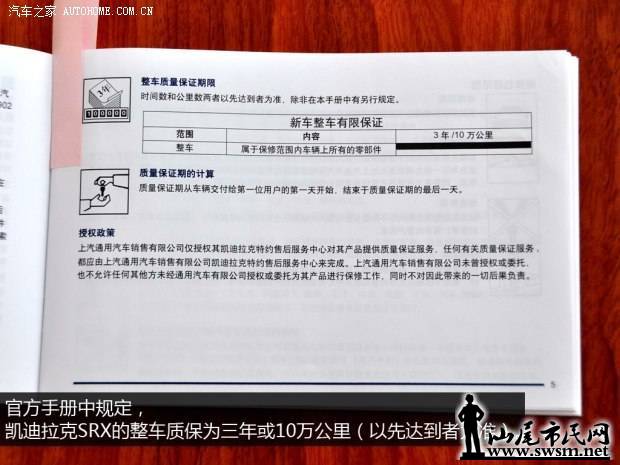 汽车之家 AUTOHOME.COM.CN
汽
902
在
后
件
索
3年
100000
整车质量保证期限
时间数和公里数两者以先达到者为准，除非在本手册中有另行规定。
新车整车有限保证
范围 内容 3 年 /10 万公里
整车 属于保修范围内车辆上所有的零部件
质量保证期的计算
质量保证期从车辆交付给第一位用户的第一天开始，结束于质量保证期的最后一天。
授权政策
上汽通用汽车销售有限公司仅授权其凯迪拉克特约售后服务中心对其产品提供质量保证服务，任何有关质量保证服务，
都应由上汽通用汽车销售有限公司凯迪拉克特约售后服务中心来完成。上汽通用汽车销售有限公司未曾授权或委托，
也不允许任何其他方未经通用汽车有限公司授权或委托为其产品进行保修工作，同时不对因此带来的一切后果负责。
5
官方手册中规定，
凯迪拉克SRX的整车质保为三年或10万公里（以先达到者
汕尾市民网
www.swsm.net